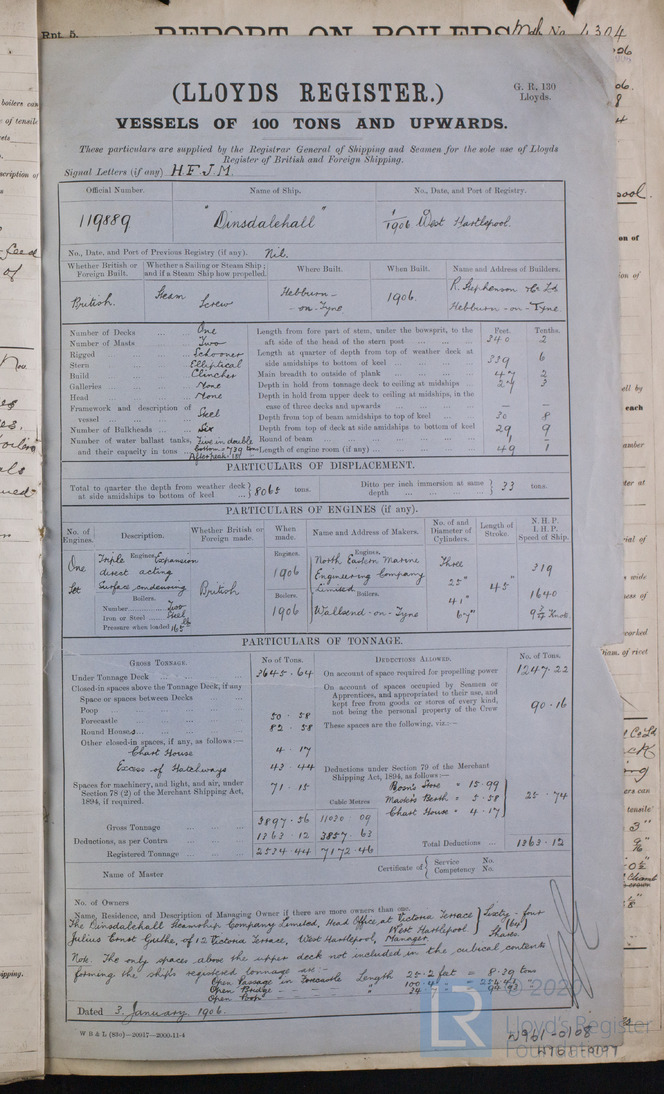 Rpt. 5.
REPORT ON BOILERS
No. 4304
(LLOYDS REGISTER.)
G. R. 130
Lloyds.
VESSELS OF 100 TONS AND UPWARDS.
These particulars are supplied by the Registrar General of Shipping and Seamen for the sole use of Lloyds
Register of British and Foreign Shipping.
Signal Letters (if any) H.F.J.M.
Official Number. Name of Ship. No., Date, and Port of Registry.
119889 "Dinsdalehall" 1/1906 West Hartlepool.
No., Date, and Port of Previous Registry (if any). Nil.
Whether British or Foreign Built. Whether a Sailing or Steam Ship; and if a Steam Ship how propelled. Where Built. When Built. Name and Address of Builders.
British. Steam Screw Hebburn-on-Tyne 1906. R. Stephenson & Co Ld Hebburn-on-Tyne.
Number of Decks ... One
Number of Masts ... Two
Rigged ... Schooner
Stern ... Elliptical
Build ... Clincher
Galleries ... None
Head ... None
Framework and description of vessel ... Steel
Number of Bulkheads ... Six
Number of water ballast tanks, and their capacity in tons ... Five in double bottom = 739 tons After peak = 181 "
Feet. Tenths.
Length from fore part of stem, under the bowsprit, to the aft side of the head of the stern post ... 340 2
Length at quarter of depth from top of weather deck at side amidships to bottom of keel ... 339 6
Main breadth to outside of plank ... 47 2
Depth in hold from tonnage deck to ceiling at midships ... 24 3
Depth in hold from upper deck to ceiling at midships, in the case of three decks and upwards ... —
Depth from top of beam amidships to top of keel ... 30 8
Depth from top of deck at side amidships to bottom of keel 29 9
Round of beam ... 1 —
Length of engine room (if any) ... 49 1
PARTICULARS OF DISPLACEMENT.
Total to quarter the depth from weather deck at side amidships to bottom of keel ... 8065 tons. Ditto per inch immersion at same depth ... 33 tons.
PARTICULARS OF ENGINES (if any).
No. of Engines. Description. Whether British or Foreign made. When made. Name and Address of Makers. No. of and Diameter of Cylinders. Length of Stroke. N.H.P. I.H.P. Speed of Ship.
One Set
Engines. Triple Expansion direct acting Surface condensing
Boilers.
Number ... Two
Iron or Steel ... Steel
Pressure when loaded 165 lb
British
Engines. 1906
Boilers. 1906
Engines. North Eastern Marine Engineering Company Limited
Boilers. Wallsend-on-Tyne
Three 25" 41" 67"
45"
319
1640
9 3/4 Knots
PARTICULARS OF TONNAGE.
GROSS TONNAGE. No. of Tons. DEDUCTIONS ALLOWED. No. of Tons.
Under Tonnage Deck ... 3645.64
Closed-in spaces above the Tonnage Deck, if any
Space or spaces between Decks ...
Poop ...
Forecastle ... 50.58
Round Houses ... 82.58
Other closed-in spaces, if any, as follows:—
Chart House 4.17
Excess of Hatchways 43.44
Spaces for machinery, and light, and air, under Section 78 (2) of the Merchant Shipping Act, 1894, if required. 71.15
Cubic Metres
Gross Tonnage ... 3897.56 11030.09
Deductions, as per Contra ... 1363.12 3857.63
Registered Tonnage ... 2534.44 7172.46
On account of space required for propelling power 1247.22
On account of spaces occupied by Seamen or Apprentices, and appropriated to their use, and kept free from goods or stores of every kind, not being the personal property of the Crew 90.16
These spaces are the following, viz.:—
Deductions under Section 79 of the Merchant Shipping Act, 1894, as follows:—
Bosn's Store = 15.99
Master's Berth = 5.58
Chart House = 4.17
25.74
Total Deductions ... 1363.12
Name of Master
Certificate of Service No.
Competency No.
No. of Owners
Name, Residence, and Description of Managing Owner if there are more owners than one.
The Dinsdalehall Steamship Company Limited, Head Office, at Victoria Terrace West Hartlepool Sixty-four (64) Shares
Julius Ernst Guthe, of 12 Victoria Terrace, West Hartlepool, Manager.
Note. The only spaces above the upper deck not included in the cubical contents
forming the ship's registered tonnage are:—
Open Passage in Forecastle Length 25.2 feet = 8.29 tons
Open Bridge
Open Poop
Dated 3 January 1906.
W B & L (83o)—20917—2000-11-4
© 2020
LR
Lloyd's Register
Foundation
W961-0108